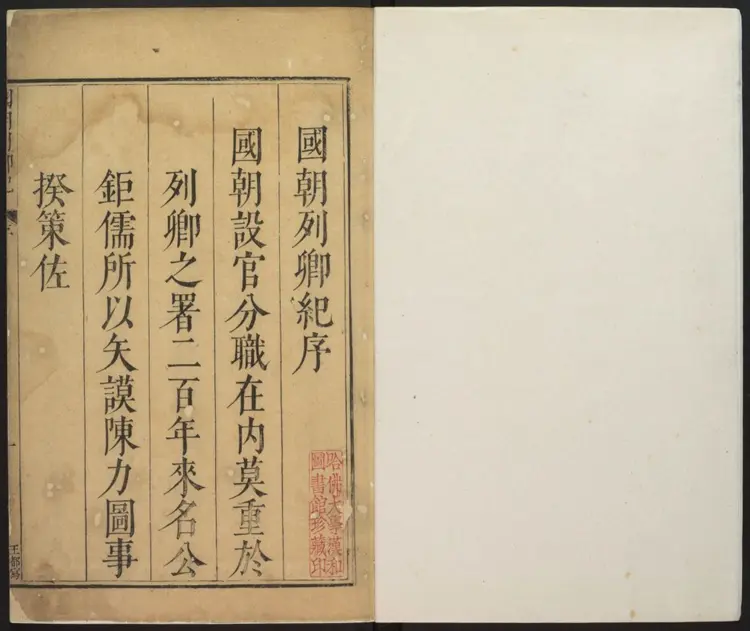 國朝列卿紀序
國朝設官分職在内莫重於
列卿之署二百年來名公
鉅儒所以矢謨陳力圖事
揆策佐
哈佛大學漢和
圖書館珍藏印